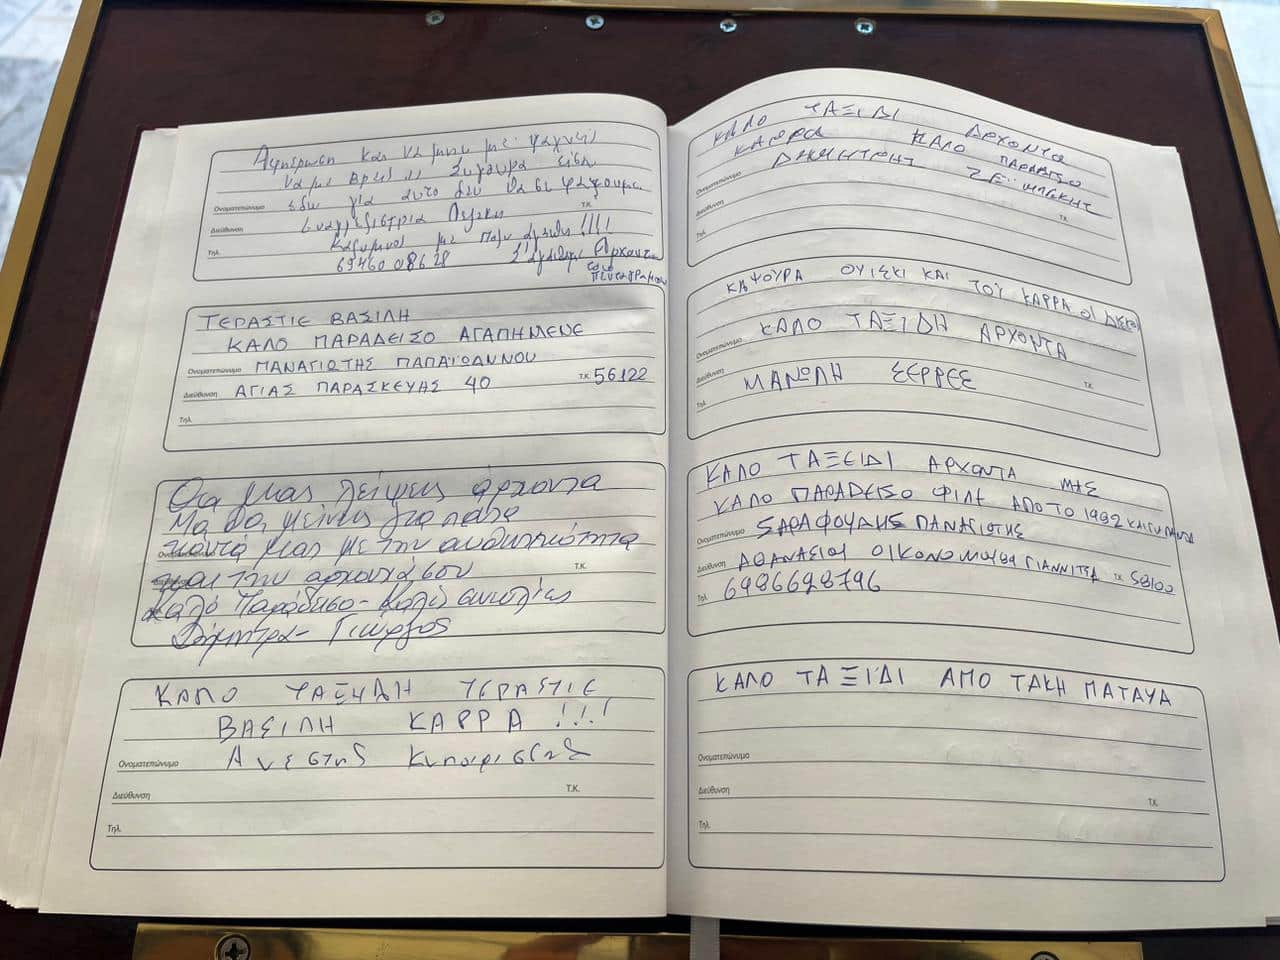 Αφιέρωση και να μην με ψάχνεις
να με βρεις Σίγουρα είσαι
εδώ για αυτό δεν θα σε ψάξουμε
Ονοματεπώνυμο
Τ.Κ.
Διεύθυνση
Τηλ.
με πολύ αγάπη !!!!
6946008628
Αρχοντα
του
πενταγράμμου
ΤΕΡΑΣΤΙΕ ΒΑΣΙΛΗ
ΚΑΛΟ ΠΑΡΑΔΕΙΣΟ ΑΓΑΠΗΜΕΝΕ
Ονοματεπώνυμο ΠΑΝΑΓΙΩΤΗΣ ΠΑΠΑΙΩΑΝΝΟΥ
Διεύθυνση ΑΓΙΑΣ ΠΑΡΑΣΚΕΥΗΣ 40 Τ.Κ. 56122
Τηλ.
Θα μας λείψεις άρχοντα
Μα θα μείνεις για πάντα
κοντά μας με την αυθεντικότητα
Ονοματεπώνυμο
και την αρχοντιά σου
Τ.Κ.
Καλό Παράδεισο - Καλές συναυλίες
Δήμητρα - Γιώργος
ΚΑΛΟ ΤΑΞΗΔΗ ΤΕΡΑΣΤΙΕ
ΒΑΣΙΛΗ ΚΑΡΡΑ !!!
Ονοματεπώνυμο Ανέστης
Διεύθυνση Τ.Κ.
Τηλ.
ΚΑΛΟ ΤΑΞΙΔΙ ΑΡΧΟΝΤΑ
ΚΑΡΡΑ ΚΑΛΟ ΠΑΡΑΔΙΣΟ
Ονοματεπώνυμο ΔΗΜΗΤΡΗΣ
Διεύθυνση Τ.Κ.
Τηλ.
ΚΑΨΟΥΡΑ ΟΥΙΣΚΙ ΚΑΙ ΤΟΥ ΚΑΡΡΑ ΟΙ ΔΙΣΚΟΙ
Ονοματεπώνυμο ΚΑΛΟ ΤΑΞΙΔΗ ΑΡΧΟΝΤΑ
Διεύθυνση Τ.Κ.
Τηλ. ΜΑΝΩΛΗ ΣΕΡΡΕΣ
ΚΑΛΟ ΤΑΞΕΙΔΙ ΑΡΧΟΝΤΑ ΜΑΣ
ΚΑΛΟ ΠΑΡΑΔΕΙΣΟ ΦΙΛΕ ΑΠΟ ΤΟ 1992 ΚΑΙ ΓΙΑ ΠΑΝΤΑ
Ονοματεπώνυμο ΣΑΡΑΦΟΥΔΗΣ ΠΑΝΑΓΙΩΤΗΣ
Διεύθυνση ΑΘΑΝΑΣΙΟΥ ΟΙΚΟΝΟΜΟΥ ΓΙΑΝΝΙΤΣΑ Τ.Κ. 58100
Τηλ. 6986628796
ΚΑΛΟ ΤΑΞΙΔΙ ΑΠΟ ΤΑΚΗ ΠΑΤΑΥΑ
Ονοματεπώνυμο
Διεύθυνση Τ.Κ.
Τηλ.